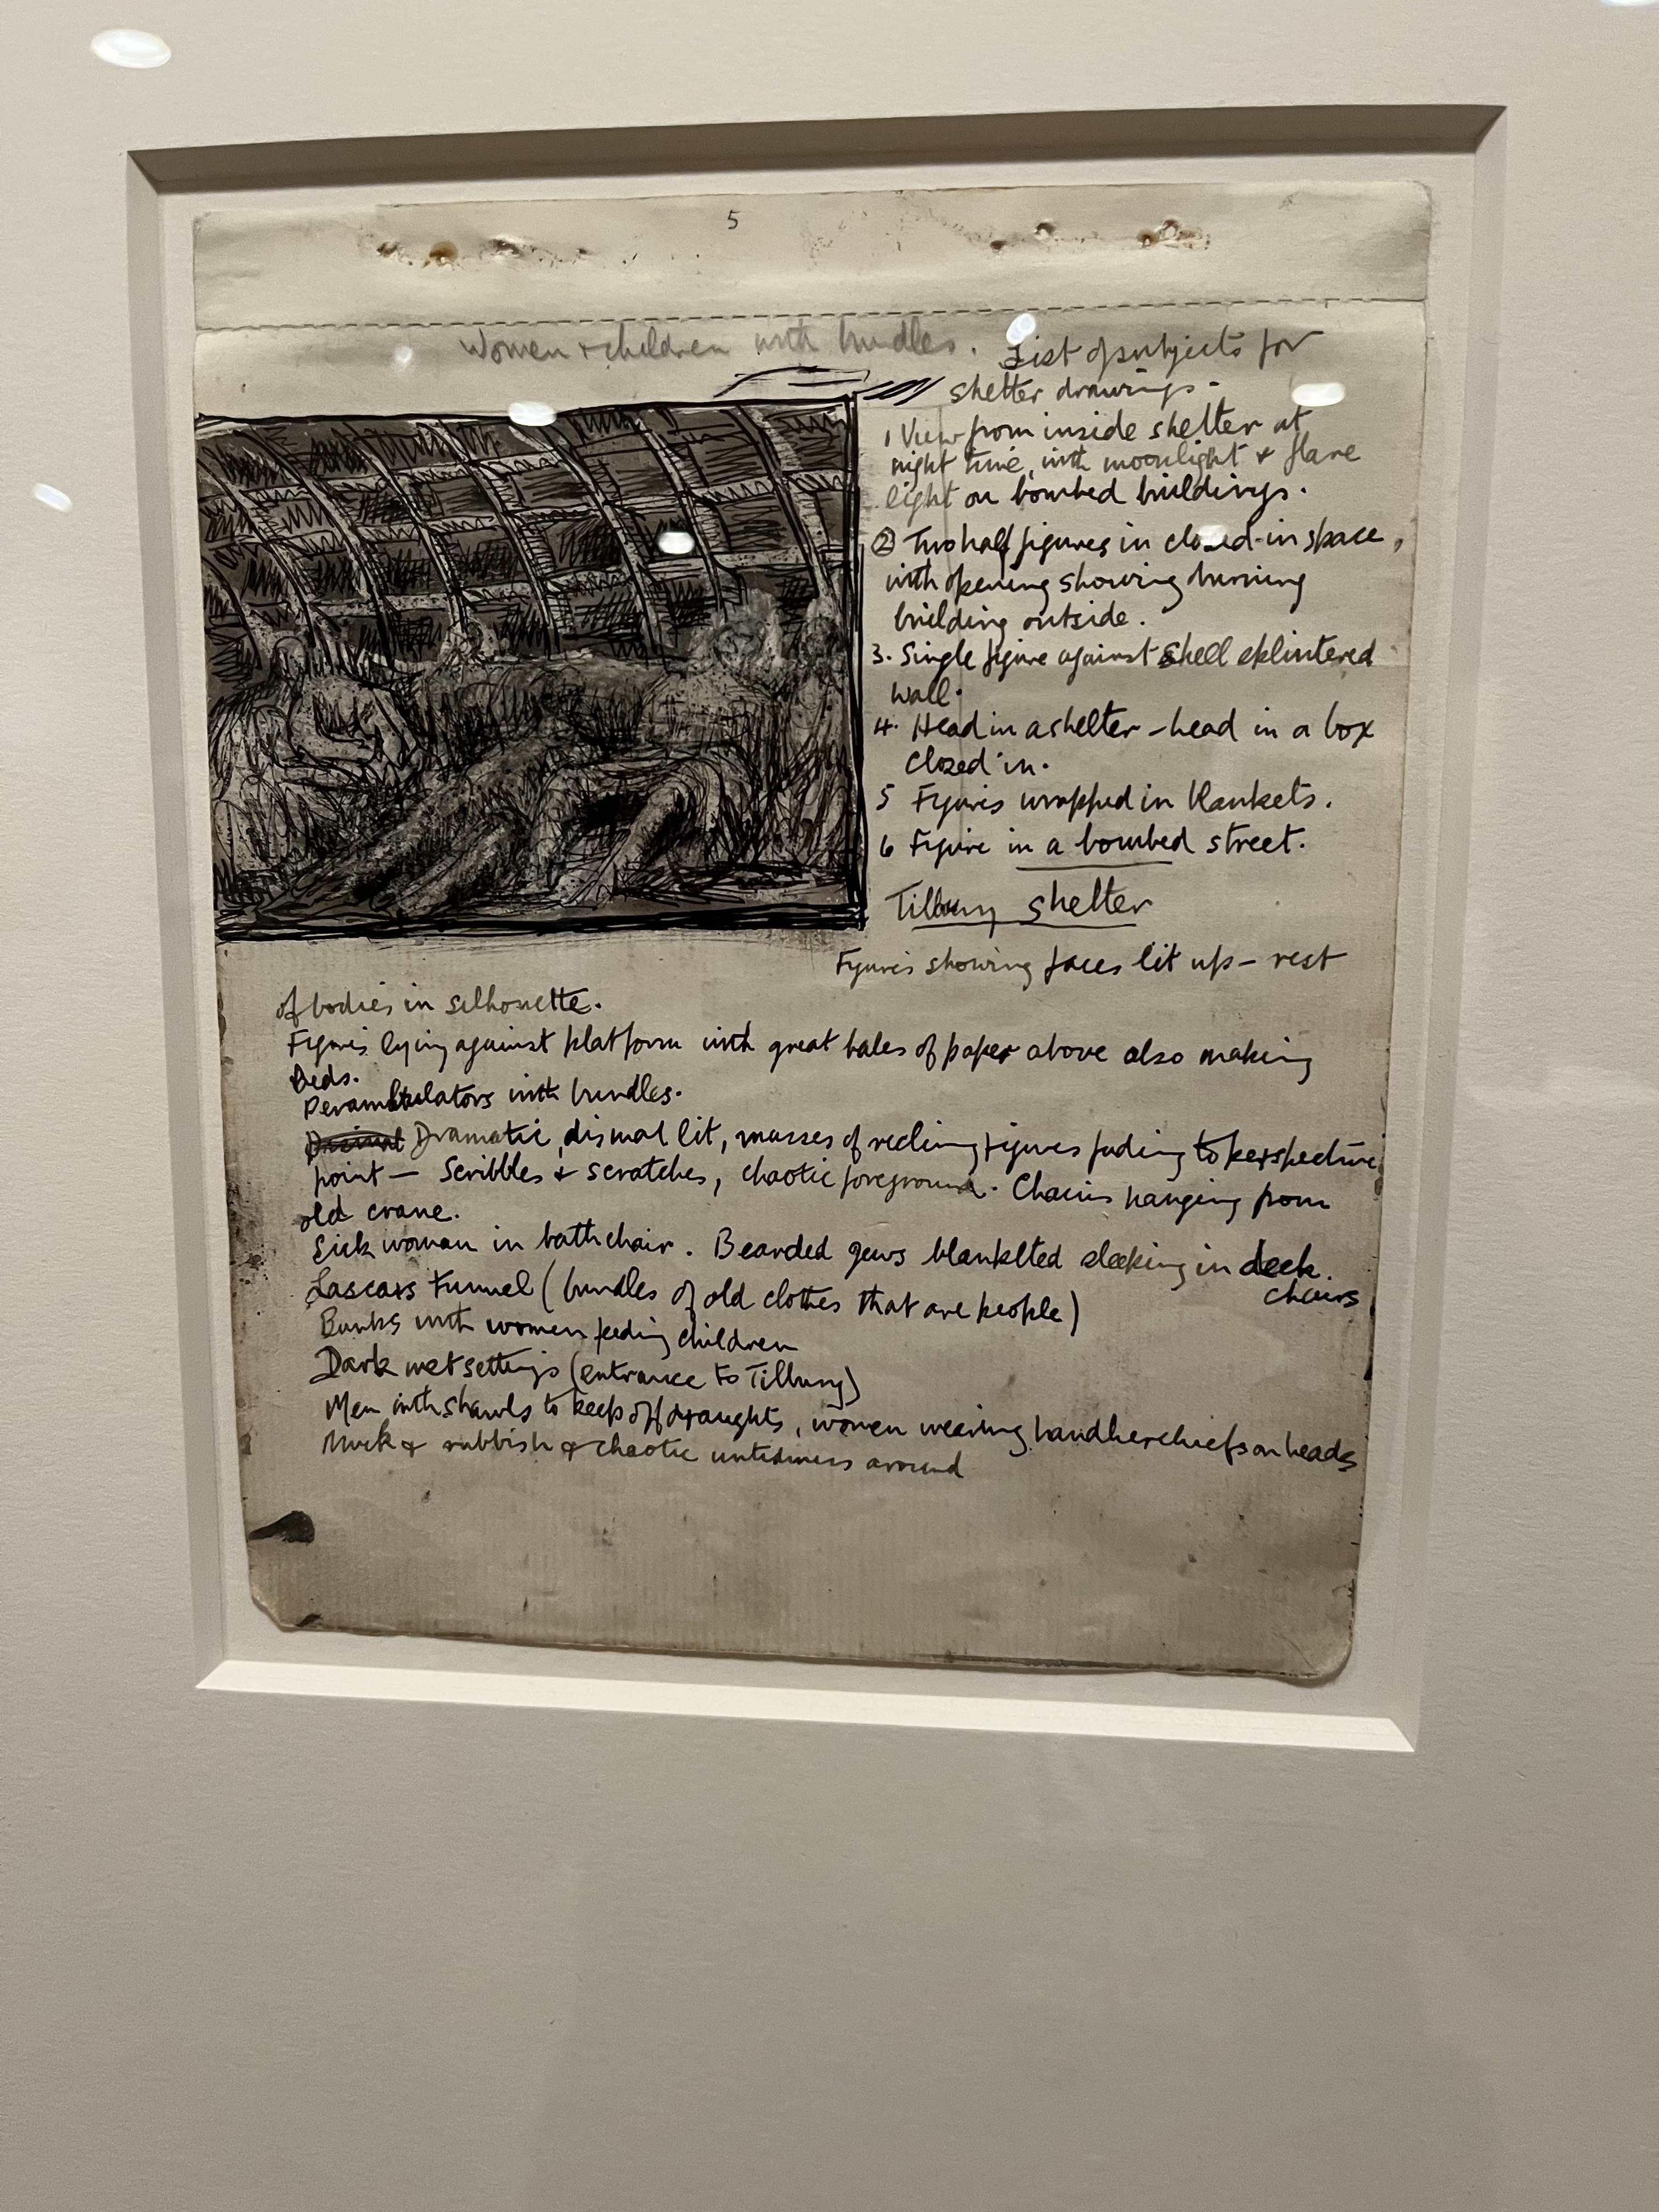 5
Women + children with bundles.
List of subjects for
shelter drawings.
1 View from inside shelter at
night time, with moonlight & flare
light on bombed buildings.
② Two half figures in closed-in space,
with opening showing burning
building outside.
3. Single figure against shell splintered
wall.
4. Head in a shelter – head in a box
closed in.
5 Figures wrapped in blankets.
6 Figure in a bombed street.
Tilbury shelter
Figures showing faces lit up – rest
of bodies in silhouette.
Figures lying against platform with great bales of paper above also making
Beds.
Perambulators with bundles.
Dramatic, dismal lit, masses of reclining figures fading to perspective
point — Scribbles & scratches, chaotic foreground. Chains hanging from
old crane.
Sick woman in bathchair. Bearded jews blanketed sleeping in deck.
chairs
Lascars Tunnel (bundles of old clothes that are people)
Bunks with women feeding children
Dark wet settings (entrance to Tilbury)
Men with shawls to keep off draughts, women wearing handkerchiefs on heads
Muck & rubbish & chaotic untidiness around